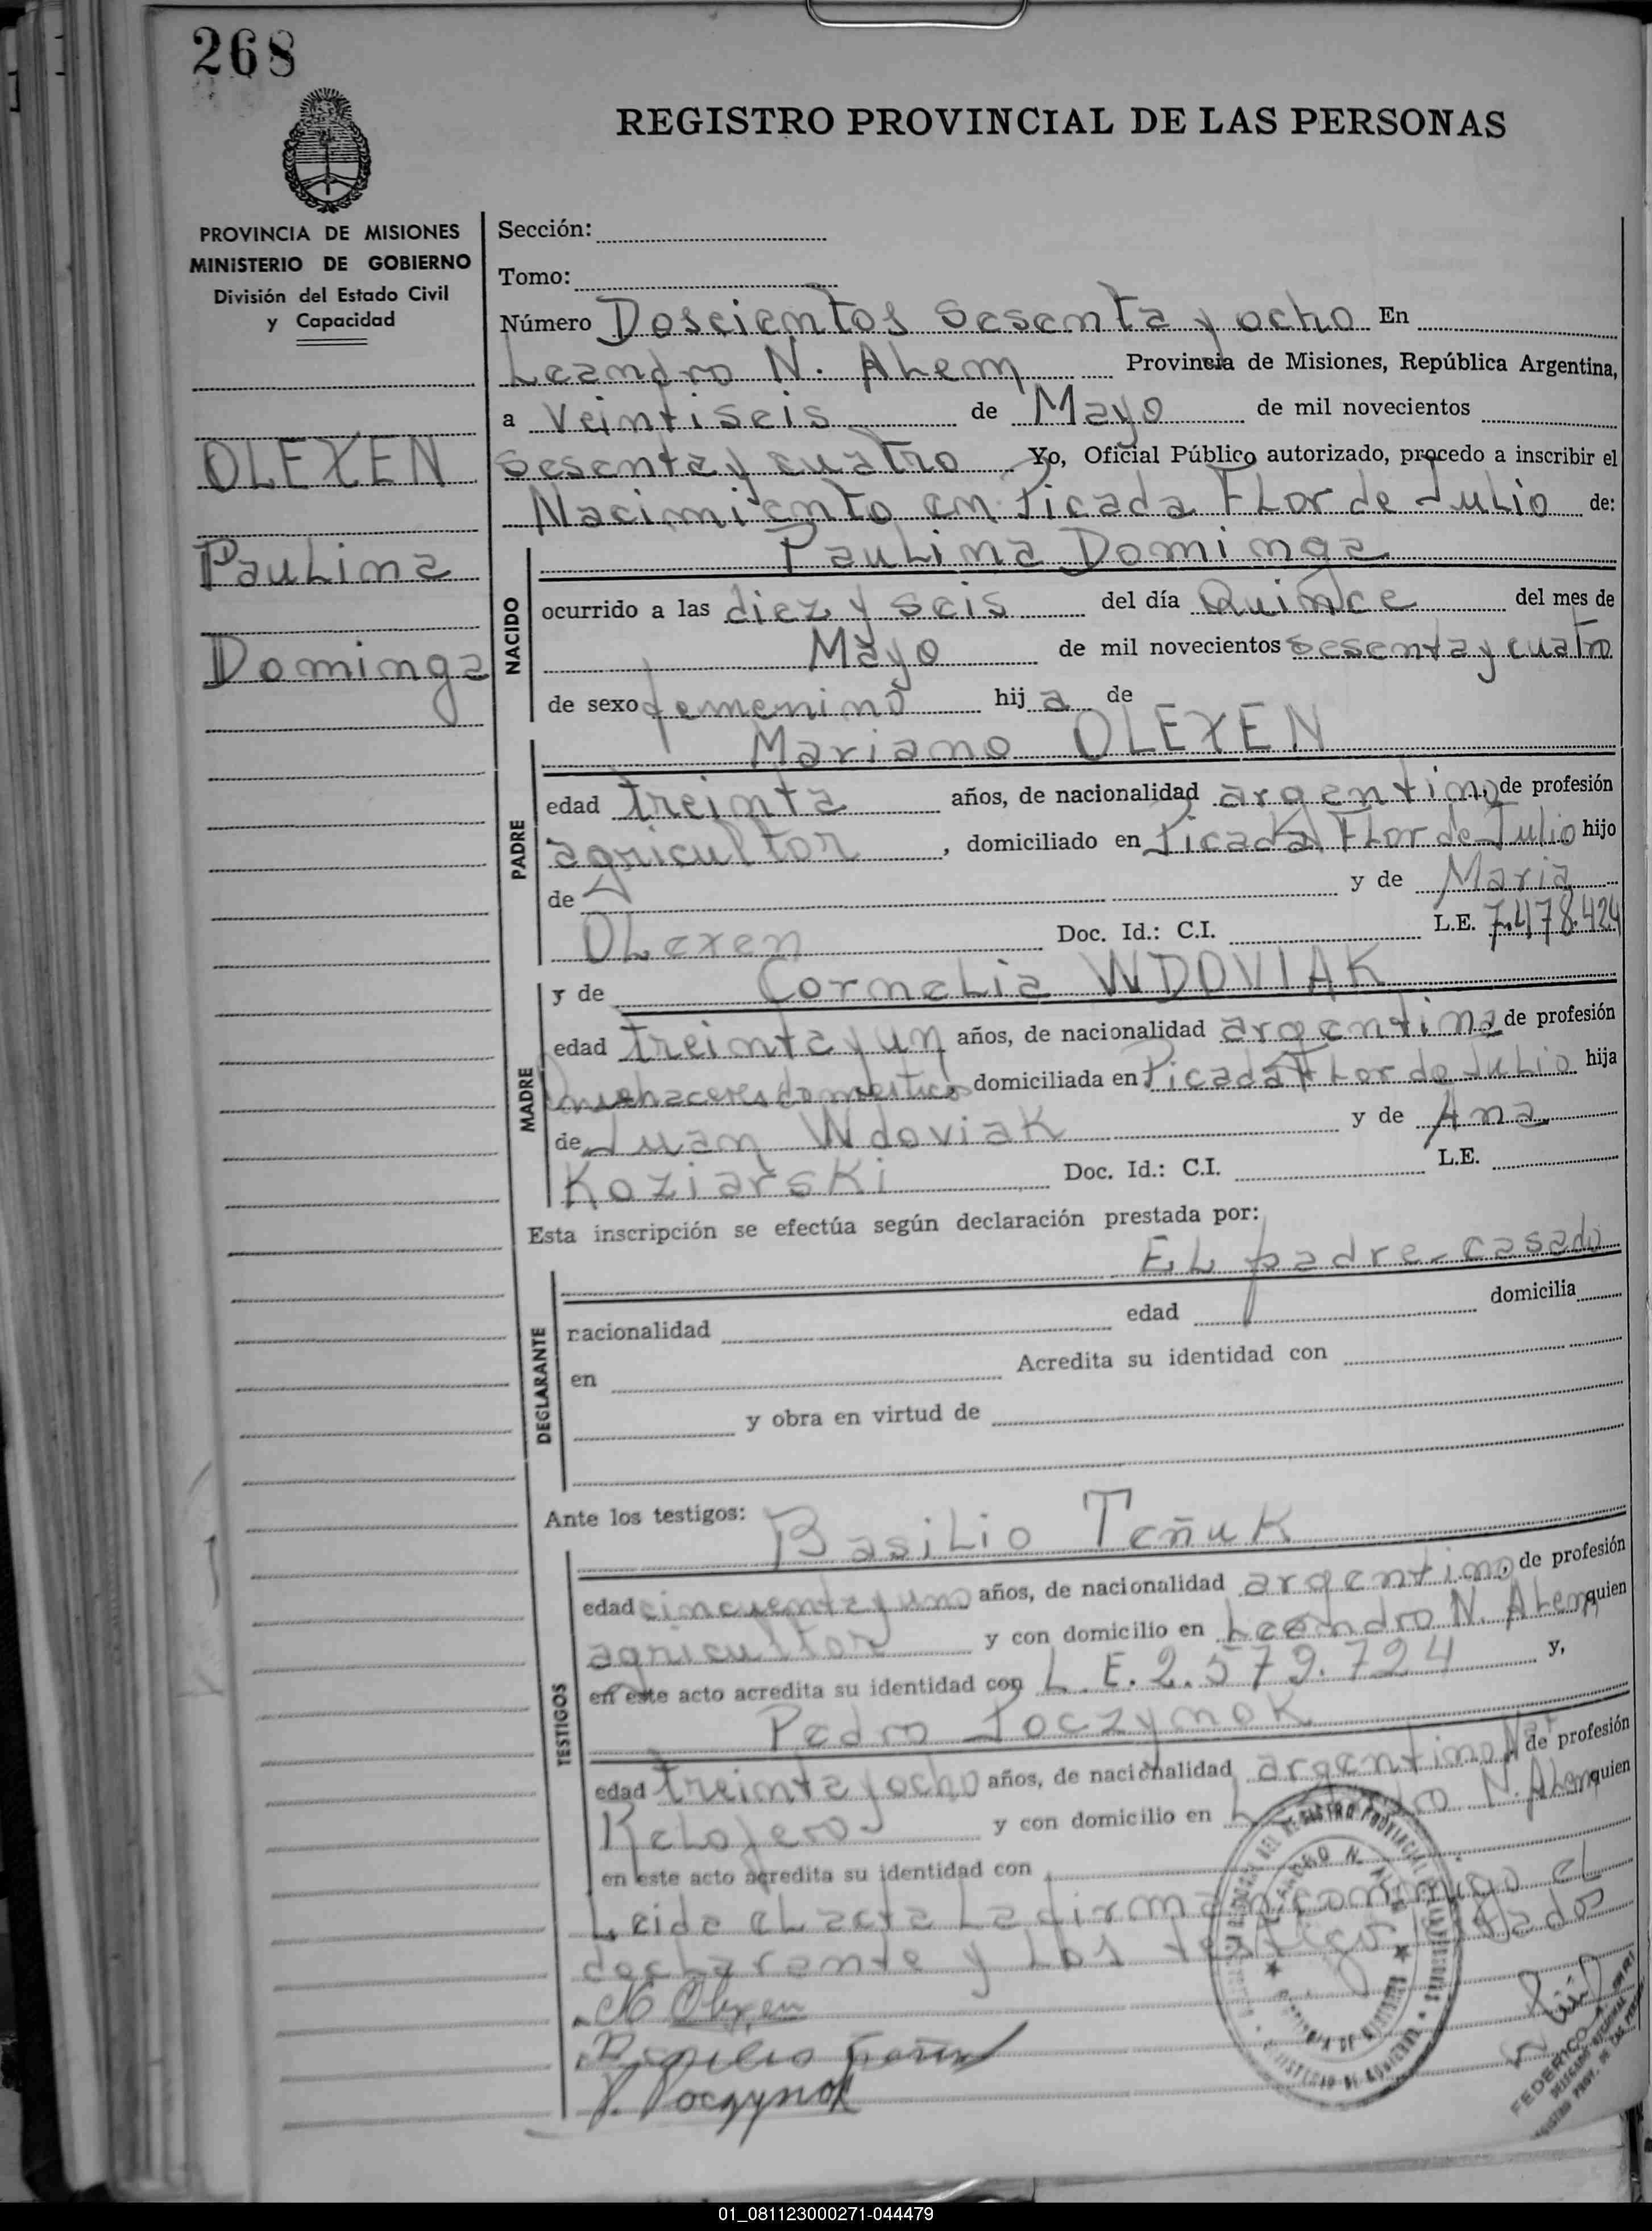 268
REGISTRO PROVINCIAL DE LAS PERSONAS
PROVINCIA DE MISIONES
MINISTERIO DE GOBIERNO
División del Estado Civil
y Capacidad
OLEXEN
Paulina
Dominga
Sección:
Tomo:
Número Doscientos sesenta y ocho En
Leandro N. Alem Provincia de Misiones, República Argentina,
a Veintiseis de Mayo de mil novecientos
sesenta y cuatro Yo, Oficial Público autorizado, procedo a inscribir el
Nacimiento en Picada Flor de Julio de:
NACIDO
Paulina Dominga
ocurrido a las diez y seis del día Quince del mes de
Mayo de mil novecientos sesenta y cuatro
de sexo femenino hij a de
PADRE
Mariano OLEXEN
edad treinta años, de nacionalidad argentino, de profesión
agricultor, domiciliado en Picada Flor de Julio hijo
de y de Maria
Olexen Doc. Id.: C.I. L.E. 7.478.424
MADRE
y de Cornelia WDOVIAK
edad treinta y un años, de nacionalidad argentina, de profesión
Quehaceres domesticos domiciliada en Picada Flor de Julio hija
de Juan Wdoviak y de Ana
Koziarski Doc. Id.: C.I. L.E.
Esta inscripción se efectúa según declaración prestada por:
DEGLARANTE
El padre-casado
nacionalidad edad domicilia
en Acredita su identidad con
y obra en virtud de
Ante los testigos:
TESTIGOS
Basilio Teñuk
edad cincuenta y uno años, de nacionalidad argentino, de profesión
agricultor y con domicilio en Leandro N. Alem quien
en este acto acredita su identidad con L.E. 2.579.724 y,
Pedro Poczynok
edad treinta y ocho años, de nacionalidad argentino Nat de profesión
Relojero y con domicilio en Leandro N. Alem quien
en este acto acredita su identidad con
Leida el acta la firman conmigo el
declarante y los testigos
M Olexen
Basilio
P. Poczynok
FEDERICO
DELEGADO REGIONAL
01_081123000271-044479